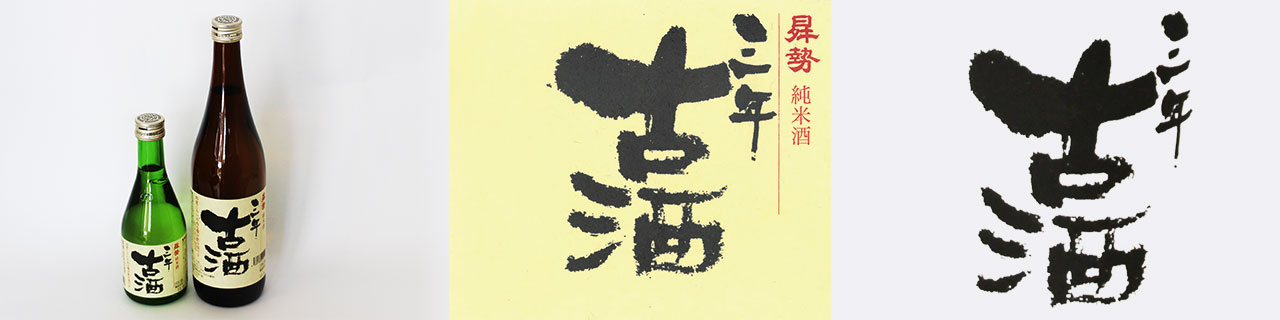 三年
古酒
三年
古酒
昇勢
純米酒
三年
古酒
三年
古酒